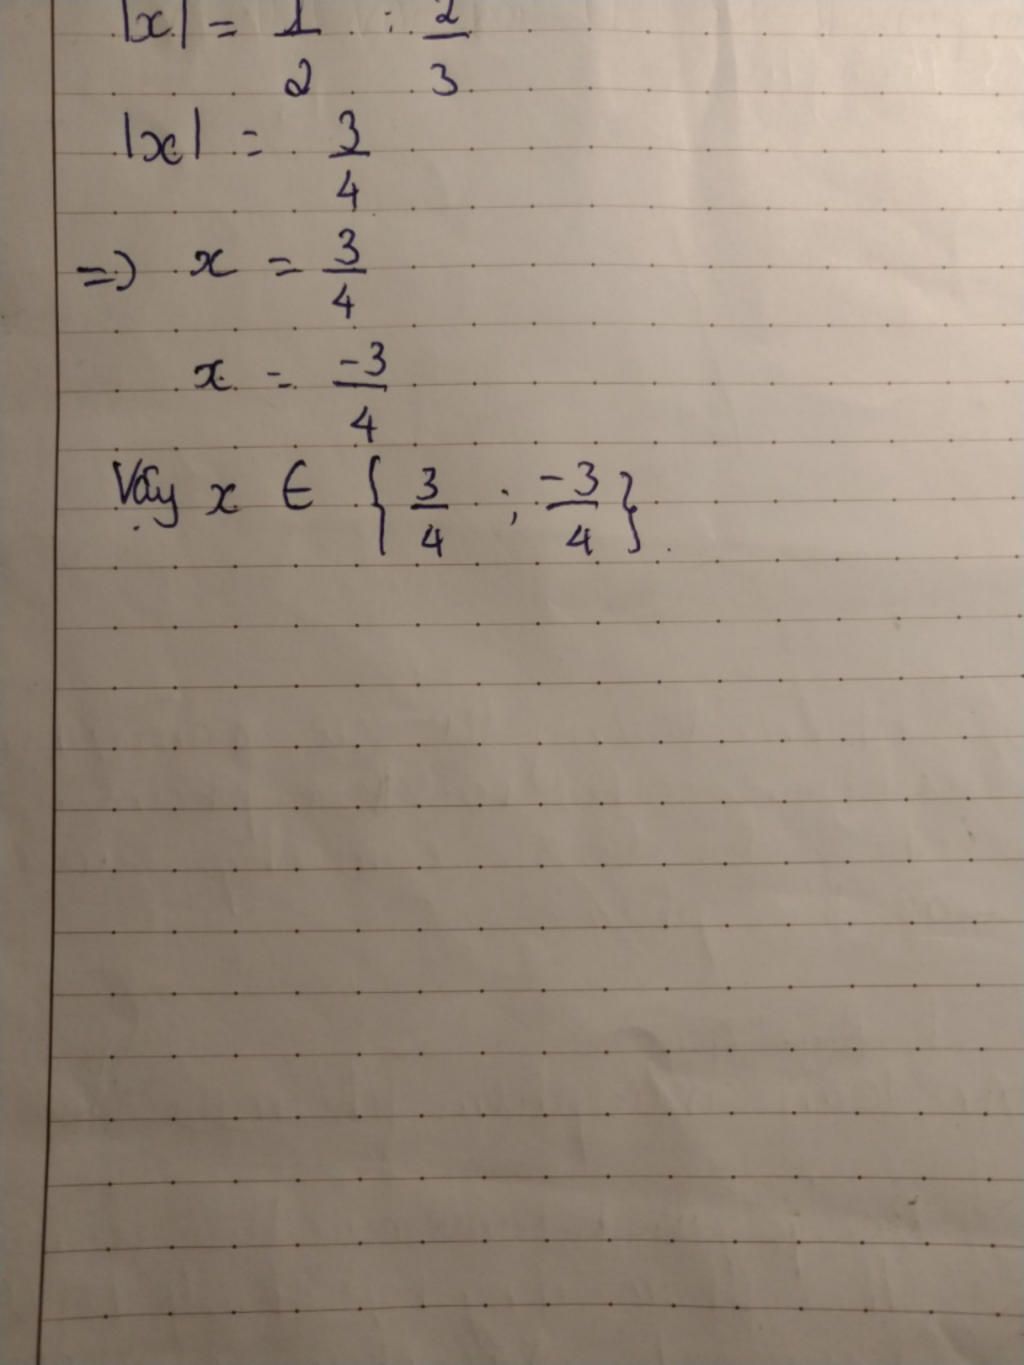 |x| = 1/2 : 2/3
|x| = 3/4
=) x = 3/4
x = -3/4
Vậy x ∈ { 3/4 ; -3/4 }.